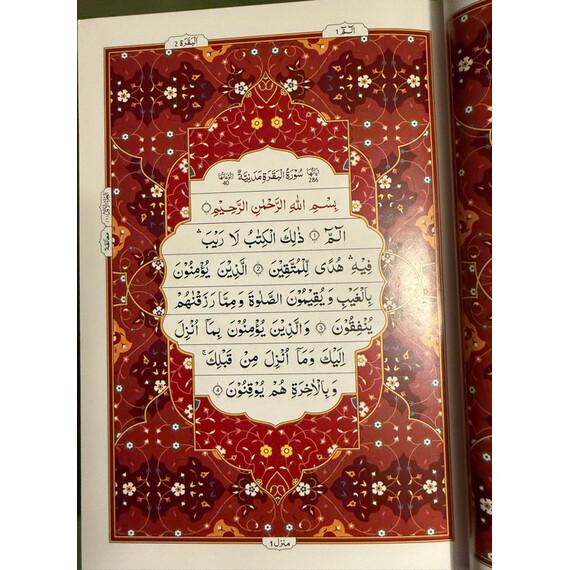 الٓمّٓ ١
اَلْبَقَرَة ٢
اٰيَاتُهَا ٢٨٦ سُوْرَةُ الْبَقَرَةِ مَدَنِيَّةٌ رُكُوْعَاتُهَا ٤٠
بِسْمِ اللّٰهِ الرَّحْمٰنِ الرَّحِيْمِ
الٓمّٓ ۝١ ذٰلِكَ الْكِتٰبُ لَا رَيْبَ ۛ
فِيْهِ ۛ هُدًى لِّلْمُتَّقِيْنَ ۝٢ الَّذِيْنَ يُؤْمِنُوْنَ
بِالْغَيْبِ وَيُقِيْمُوْنَ الصَّلٰوةَ وَمِمَّا رَزَقْنٰهُمْ
يُنْفِقُوْنَ ۝٣ وَالَّذِيْنَ يُؤْمِنُوْنَ بِمَاۤ اُنْزِلَ
اِلَيْكَ وَمَاۤ اُنْزِلَ مِنْ قَبْلِكَ ۚ
وَبِالْاٰخِرَةِ هُمْ يُوْقِنُوْنَ ۝٤
معانقة
منزل ١